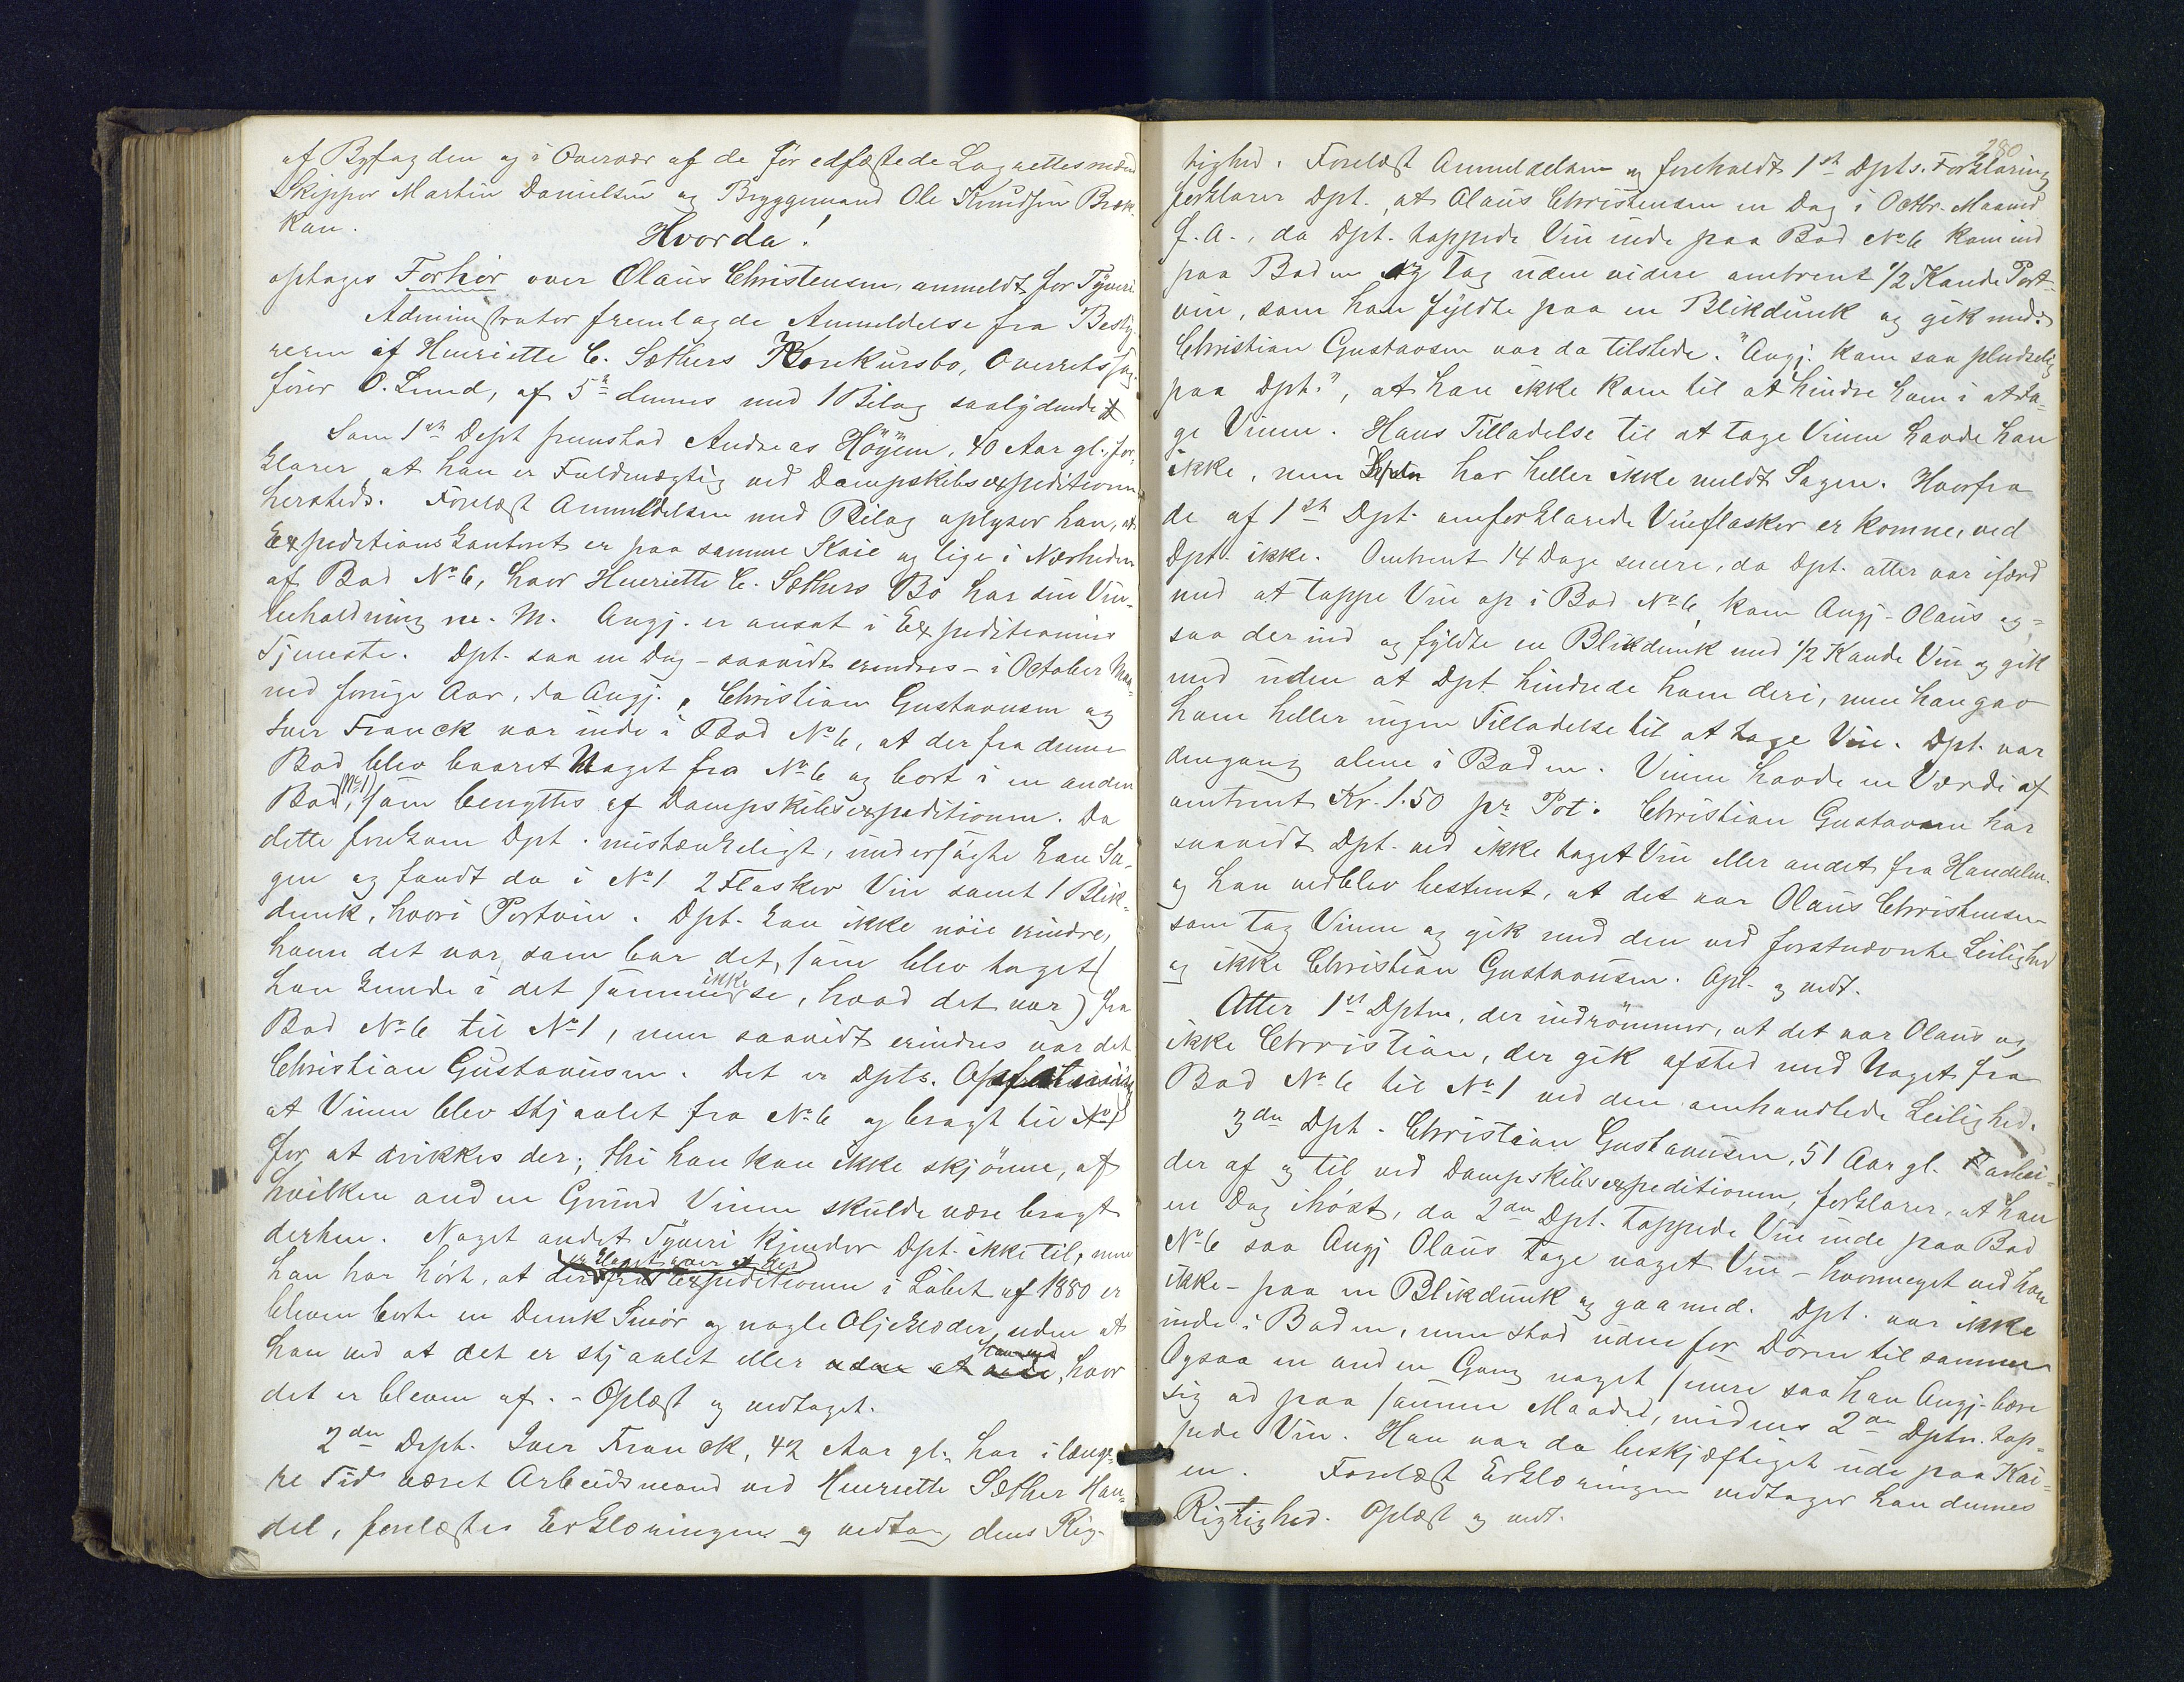 af Byfogden og i Overvær af de før edfæstede Lagrettesmænd
Skipper Martin Danielsen og Bryggemand Ole Knudsen Bræk-
kan.
Hvorda!
optages Forhør over Olaus Christensen, anmeldt for Tyveri
Administrator fremlagde Anmeldelse fra Besty-
reren af Henriette C. Sæthers Konkursbo, Overretssag-
fører O. Lund, af 5te dennes med 1 Bilag saalydende
Som 1ste Dept fremstod Andreas Höyem, 40 Aar gl. for-
klarer at han er Fuldmægtig ved Dampskibsexpeditionen
hersteds. Forelæst Anmeldelsen med Bilag oplyser han, at
Expeditionskontoret er paa samme Kaie og lige i Nærheden
af Bod No 6, hvor Henriette C. Sæthers Bo har sin Vin-
beholdning m. M. Angj. er ansat i Expeditionens
Tjeneste. Dpt. saa en Dag - saavidt erindres - i October Maa-
ned forrige Aar, da Angj., Christian Gustavsen og
Iver Franck var inde i Bod No 6, at der fra denne
Bod blev baaret Noget fra No 6 og bort i en anden
Bod (No 1), som benyttes af Dampskibsexpeditionen. Da
dette forekom Dpt. mistænkeligt, undersøgte han Sa-
gen og fandt da i No 1 2 Flasker Vin samt 1 Blik-
dunk, hvori Portvin. Dpt. kan ikke nöie erindre,
hvem det var, som bar det, som blev taget (
han kunde i det sammme ikke se, hvad det var) fra
Bod No 6 til No 1, men saavidt erindres var det
Christian Gustavsen. Det er Dpts. Opfatning
at Vinen blev stjaalet fra No 6 og bragt til No 1
for at drikkes der; thi han kan ikke skjönne, af
hvilken anden Grund Vinen skulde være bragt
derhen. Noget andet Tyveri kjender Dpt. ikke til, men
han har hørt, at der fra Expeditionen i Løbet af 1880 er
bleven borte en Dunk Smör og nogle Oljeklæder, uden at
han ved at det er stjaalet eller, hvor
det er bleven af. - Oplæst og vedtaget.
2den Dept. Iver Franck, 42 Aar gl., har i læng-
re Tid været Arbeidsmand ved Henriette Sæther Han-
del, forelæstes Erklæringen og vedtog dens Rig-
280
tighed. Forelæst Anmeldelsen og foreholdt 1ste Dpts. Forklaring
forklarer Dpt., at Olaus Christensen en Dag i Octbr. Maaned
f. A., da Dpt. tappede Vin inde paa Bod No 6 kom ind
paa Boden og tog uden videre omtrent 1/2 Kande Port-
vin, som han fyldte paa en Blikdunk og gik med.
Christian Gustavsen var da tilstede. "Angj. kom saa pludselig
paa Dpt.", at han ikke kom til at hindre ham i at ta-
ge Vinen. Hans Tilladelse til at tage Vinen havde han
ikke, men Dptn har heller ikke meldt Sagen. Hvorfra
de af 1ste Dpt. omforklarede Vinflasker er komne, ved
Dpt. ikke. Omtrent 14 Dage senere, da Dpt. atter var ifærd
med at tappe Vin op i Bod No 6, kom Angj. Olaus og-
saa der ind og fyldte en Blikdunk med 1/2 Kande Vin og gik
med uden at Dpt hindrede ham deri, men han gav
ham heller ingen Tilladelse til at tage Vin. Dpt. var
dengang alene i Boden. Vinen havde en Værdi af
omtrent Kr. 1.50 pr Pot. Christian Gustavsen har
saavidt Dpt. ved ikke taget Vin eller andet fra Handelen.
og han vedblev bestemt, at det var Olaus Christensen
som tog Vinen og gik med den ved forstnævnte Leilighed
og ikke Christian Gustavsen. Opl. og vedt.
Atter 1ste Dptn, der indrömmer, at det var Olaus og
ikke Christian, der gik afsted med Noget fra
Bod No 6 til No 1 ved den omhandlede Leilighed.
3die Dpt. Christian Gustavsen, 51 Aar gl. arbei-
der af og til ved Dampskibsexpeditionen, forklarer, at han
en Dag ihøst, da 2den Dpt. tappede Vin inde paa Bod
No 6 saa Angj Olaus tage noget Vin - hvormeget ved han
ikke - paa en Blikdunk og gaa med. Dpt. var ikke
inde i Boden, men stod uden for Dören til samme
Ogsaa en anden Gang noget senere saa han Angj. bære
sig ad paa samme Maade, medens 2den Dptn. tap-
pede Vin. Han var da beskjæftiget ude paa Kai-
en. Forelæst Erklæringen vedtager han dennes
Rigtighed. Oplæst og vedt.